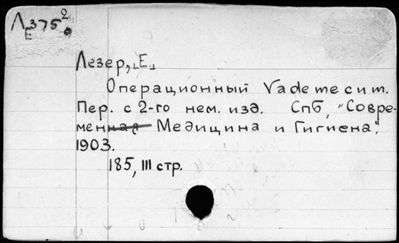 Л375²
Е
Лезер, „Е„
Операционный Vademecum.
Пер. с 2-го нем. изд. Спб, "Совре-
менная Медицина и Гигиена",
1903.
185, III стр.